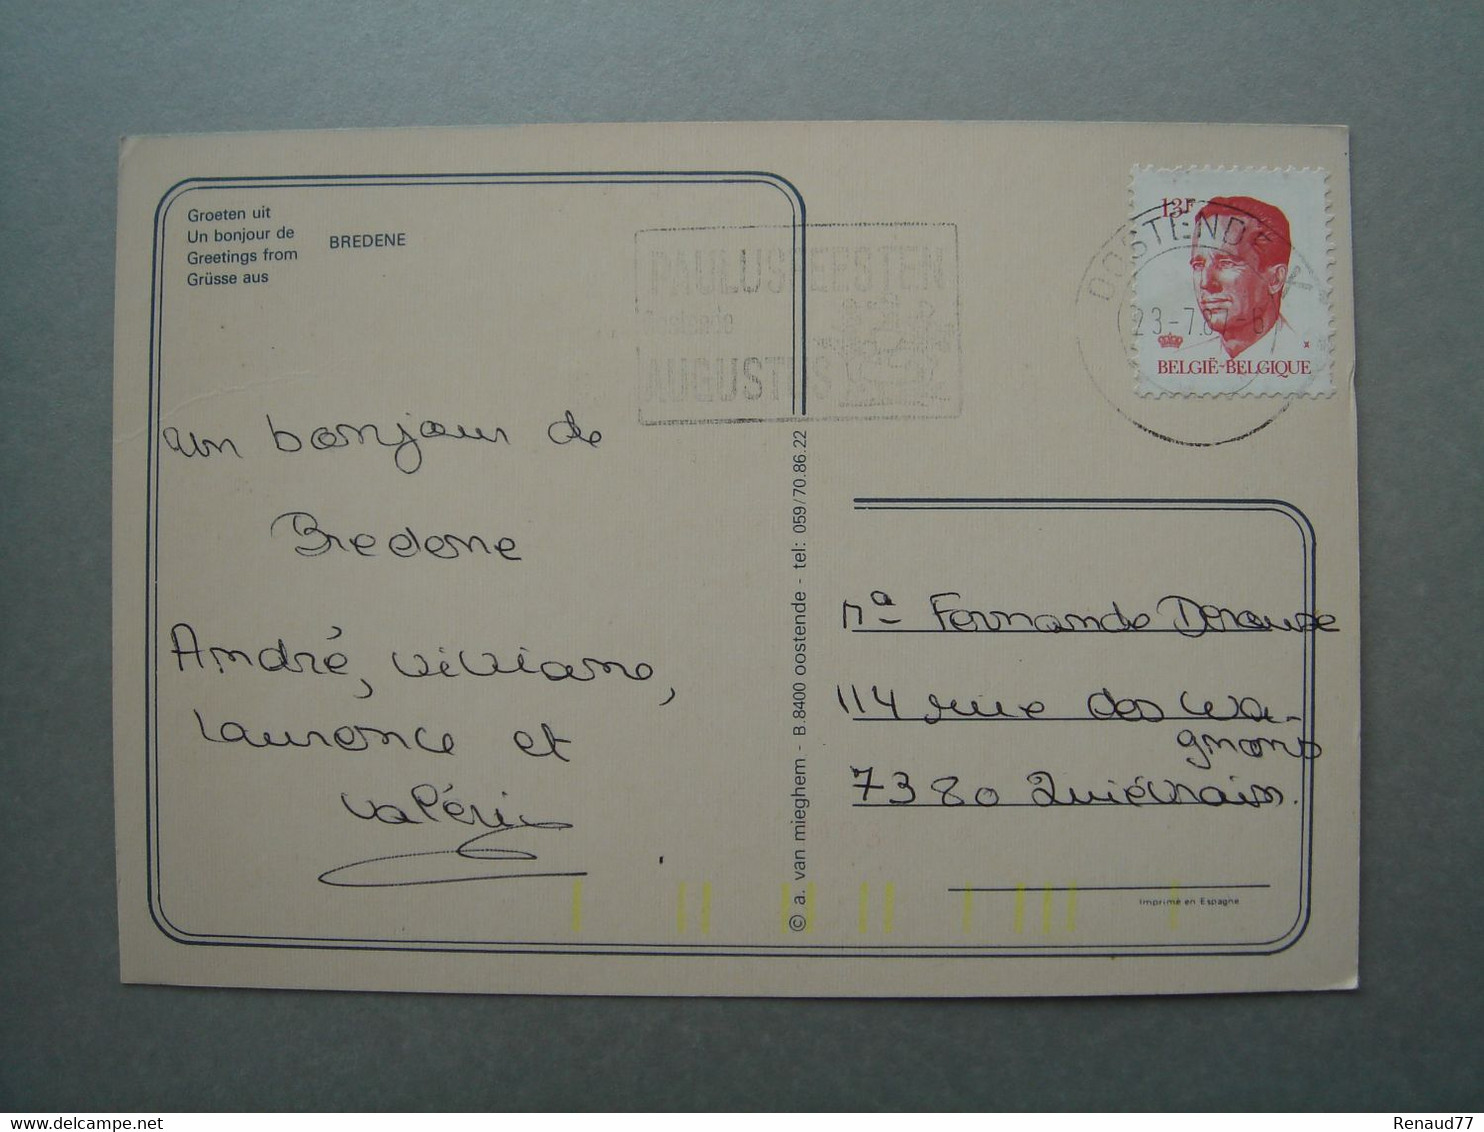 Groeten uit
Un bonjour de
Greetings from
Grüsse aus
BREDENE
PAULUSFEESTEN
Oostende
AUGUSTUS
OOSTENDE
23-7.87
13F
BELGIË-BELGIQUE
un bonjour de
Bredene
André, Viviane,
Laurence et
Valérie
© a. van mieghem - B.8400 oostende - tel: 059/70.86.22
Fernande
114 rue des Wa-
gnons
7380 Quiévrain.
Imprimé en Espagne
Renaud77